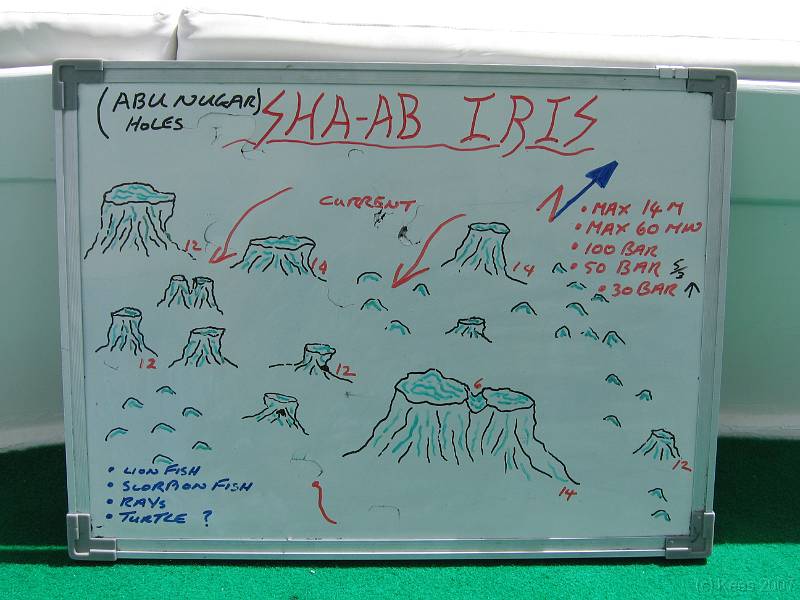 (ABU NUGAR)
HOLES
SHA-AB IRIS
N
CURRENT
• MAX 14 M
• MAX 60 MIN
• 100 BAR
• 50 BAR S/S
• 30 BAR ↑
12
14
14
12
12
6
12
14
• LION FISH
• SCORPION FISH
• RAYS
• TURTLE ?
(c) Kees 2007